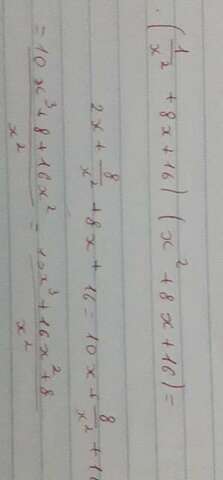 (1/x² + 8x + 16) (x² + 8x + 16) =
2x + 8/x² + 8x + 16 = 10x + 8/x² + 1
= 10x³ + 8 + 16x² / x² = 10x³ + 16x² + 8 / x²